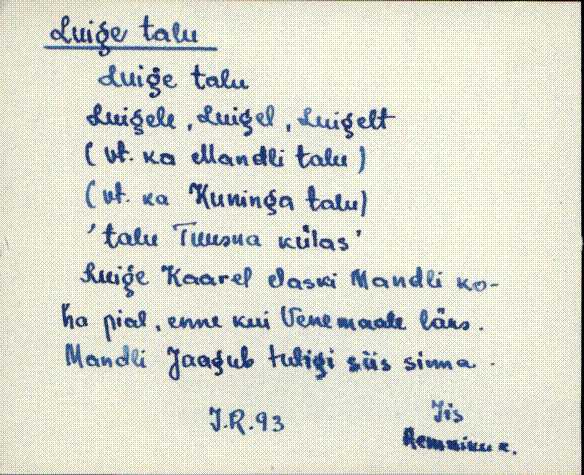 Luiǵe talu
Luiǵe talu
Luiǵele, Luiǵel, Luiǵelt
(vt. ka Mandli talu)
(vt. ka Kuninǵa talu)
'talu Tuusna külas'
Luiǵe Kaarel elaski Mandli ko-
ha pial, enne kui Venemaale läks.
Mandli Jaaǵub tuliǵi siis sinna.
J.R.93
Iis